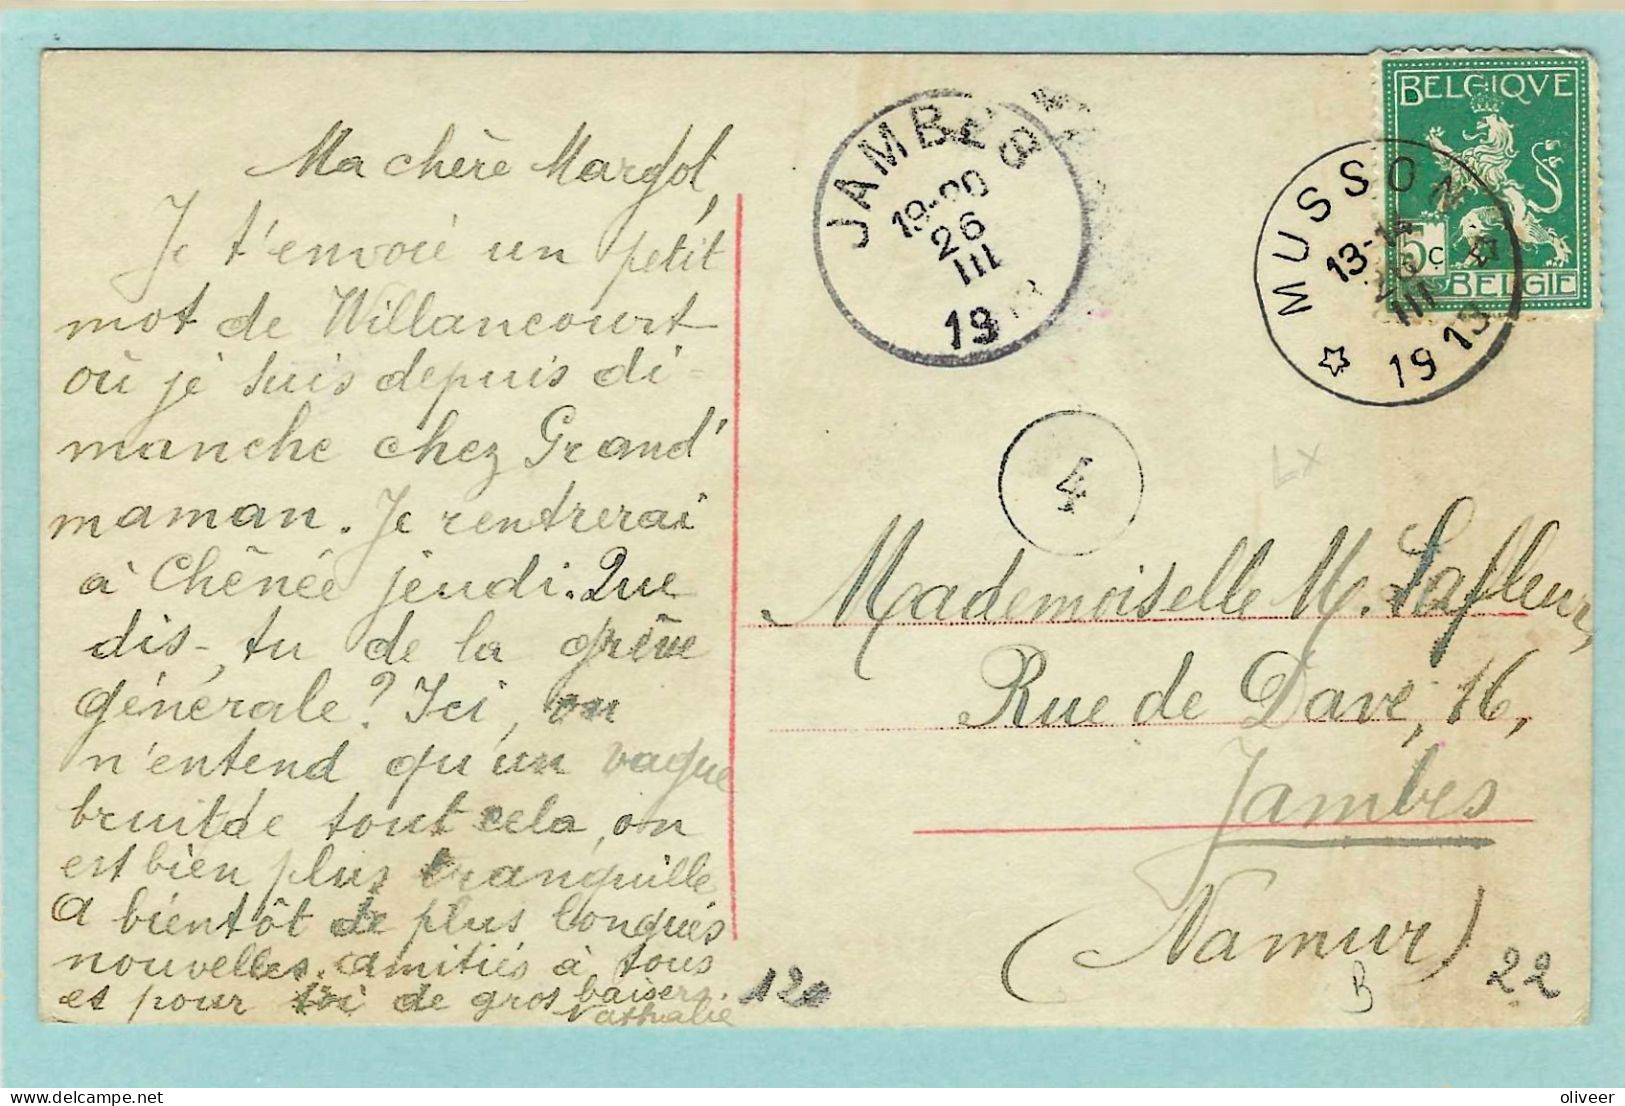 Ma chère Margot,
Je t'envoie un petit
mot de Willancourt
où je suis depuis di-
manche chez Grand'
maman. Je rentrerai
à Chênée jeudi. Que
dis-tu de la grève
générale? Ici, on
n'entend qu'un vague
bruit de tout cela, on
est bien plus tranquille
A bientôt de plus longues
nouvelles. amitiés à tous
et pour toi de gros baisers.
Nathalie
JAMBES
19-20
26
III
19
BELGIQVE
5c
BELGIE
MUSSON
13-14
III
1913
4
Mademoiselle M. Lafleur,
Rue de Dave, 16,
Jambes
(Namur)
B
22
12
oliveer